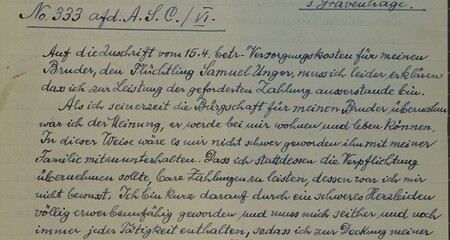 s' Gravenhage.
No. 333 afd. A.S.C./VI.
Auf die Zuschrift vom 15.4. betr. Versorgungskosten für meinen
Bruder, den Flüchtling Samuel Unger, muss ich leider erklären
dass ich zur Leistung der geforderten Zahlung ausserstande bin.
Als ich seinerzeit die Bürgschaft für meinen Bruder übernahm
war ich der Meinung, er werde bei mir wohnen und leben können.
In dieser Weise wäre es mir nicht schwer geworden ihn mit meiner
Familie mitzuunterhalten. Dass ich stattdessen die Verpflichtung
übernehmen sollte, bare Zahlungen zu leisten, dessen war ich mir
nicht bewusst. Ich bin kurz darauf durch ein schweres Herzleiden
völlig erwerbsunfähig geworden und muss mich seither und noch
immer jeder Tätigkeit enthalten, sodass ich zur Deckung meiner